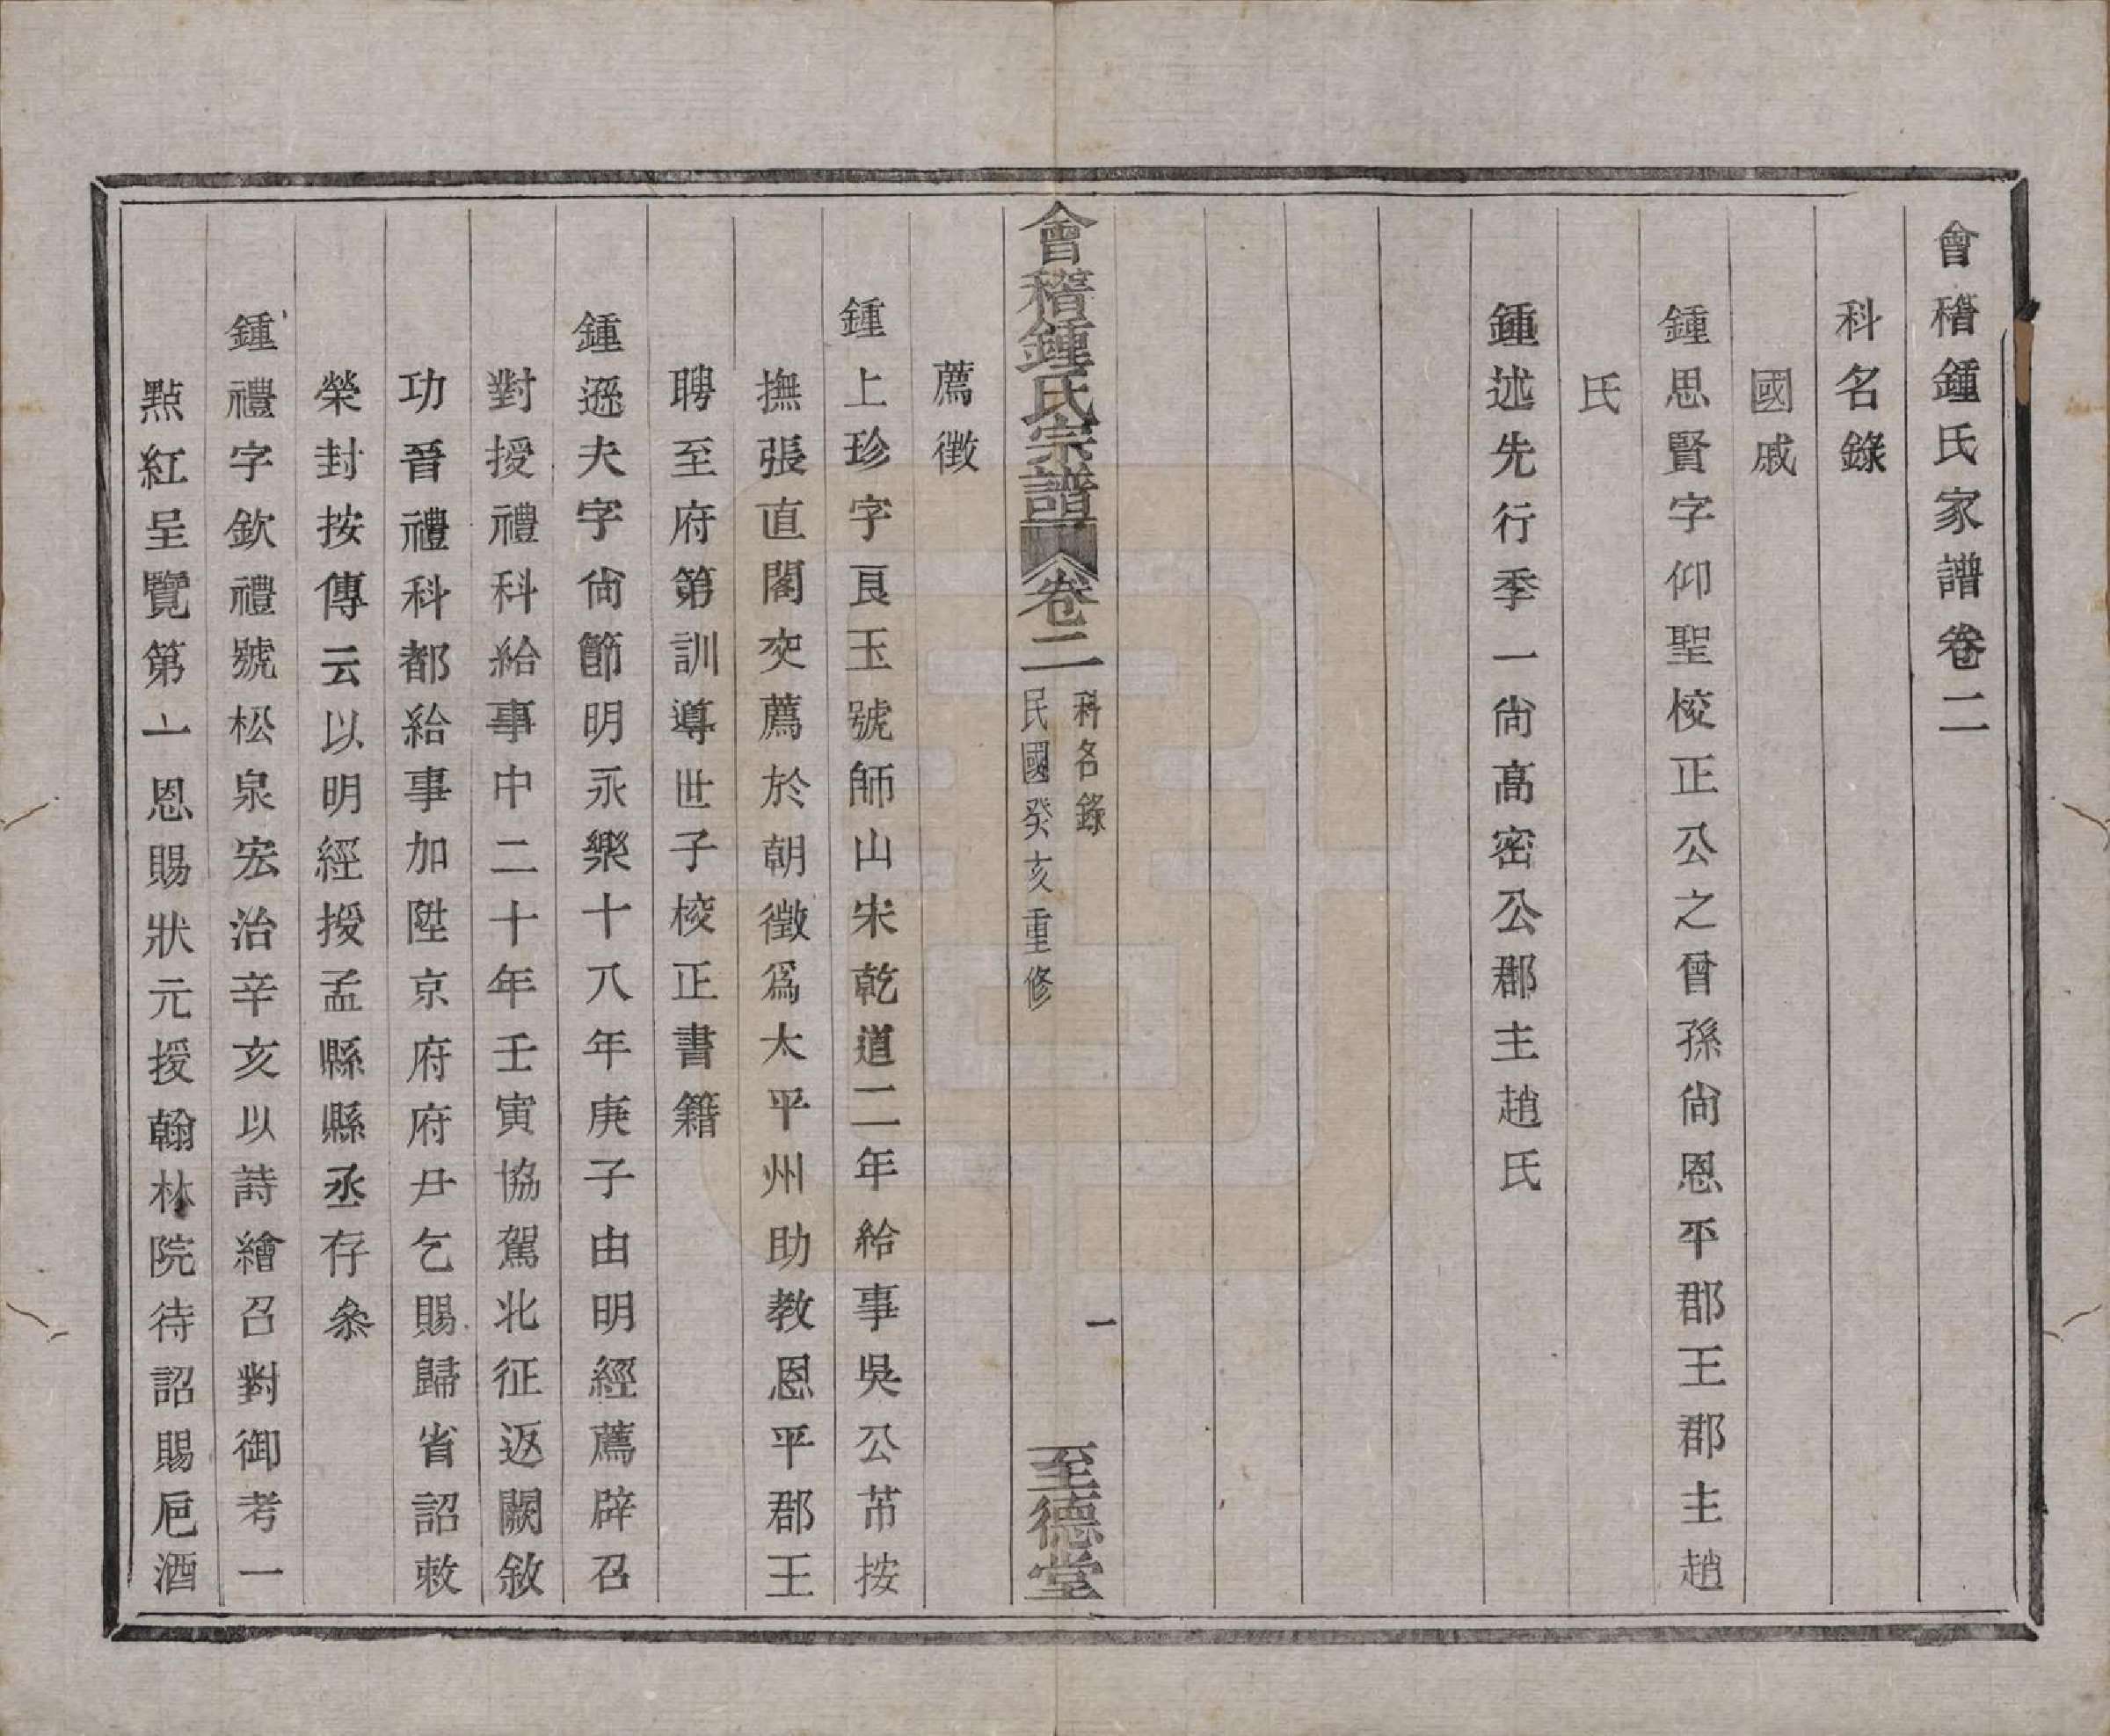 會稽鍾氏家譜卷二
科名錄
國戚
鍾思賢字仰聖校正公之曾孫尙恩平郡王郡主趙
氏
鍾述先行季一尙高密公郡主趙氏
會稽鍾氏宗譜
卷二
科名錄
民國癸亥重修
一
至德堂
薦徵
鍾上珍字良玉號師山宋乾道二年給事吳公芾按
撫張直閣交薦於朝徵爲太平州助教恩平郡王
聘至府第訓導世子校正書籍
鍾遜夫字尙節明永樂十八年庚子由明經薦辟召
對授禮科給事中二十年壬寅協駕北征返闕敘
功晉禮科都給事加陞京府府尹乞賜歸省詔敕
榮封按傳云以明經授孟縣縣丞存叅
鍾禮字欽禮號松泉宏治辛亥以詩繪召對御考一
點紅呈覽第一恩賜狀元授翰林院待詔賜卮酒